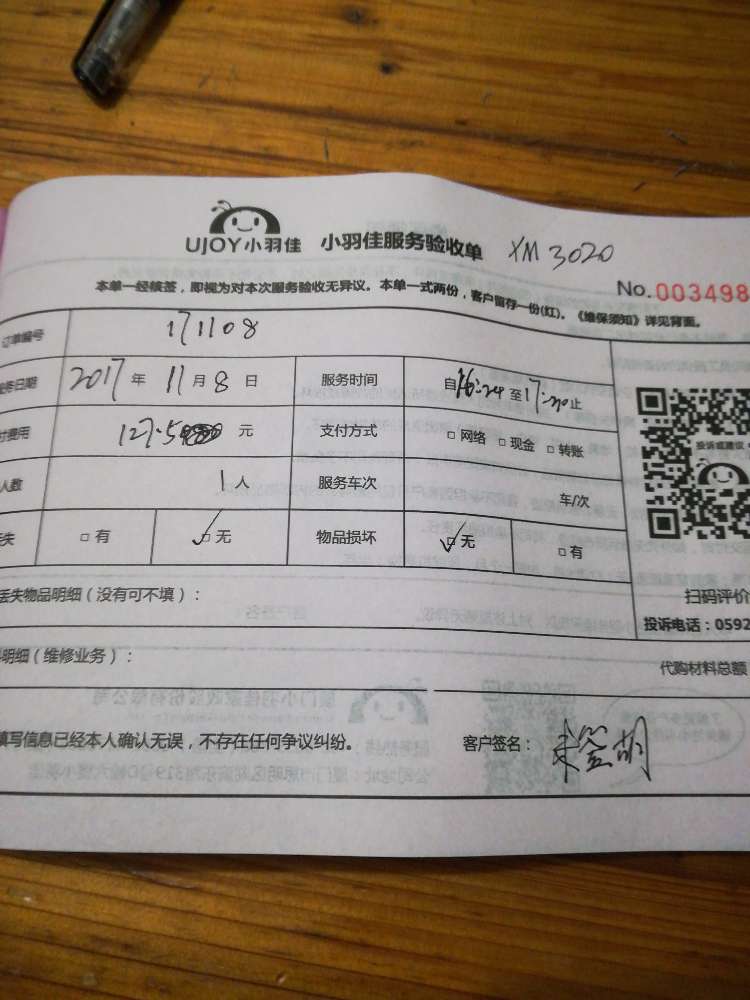 UJOY小羽佳 小羽佳服务验收单 XM3020
No.003498
本单一经核签，即视为对本次服务验收无异议。本单一式两份，客户留存一份(红)。《维保须知》详见背面。
订单编号 171108
务日期 2017年 11月8日 服务时间 自16:20至17:20止
付费用 127.5 元 支付方式 □网络 □现金 □转账
人数 1人 服务车次 车/次
失 □有 ☑无 物品损坏 ☑无 □有
投诉或建议
扫码评价
丢失物品明细（没有可不填）：
投诉电话：0592
明细（维修业务）：
代购材料总额
填写信息已经本人确认无误，不存在任何争议纠纷。
客户签名：